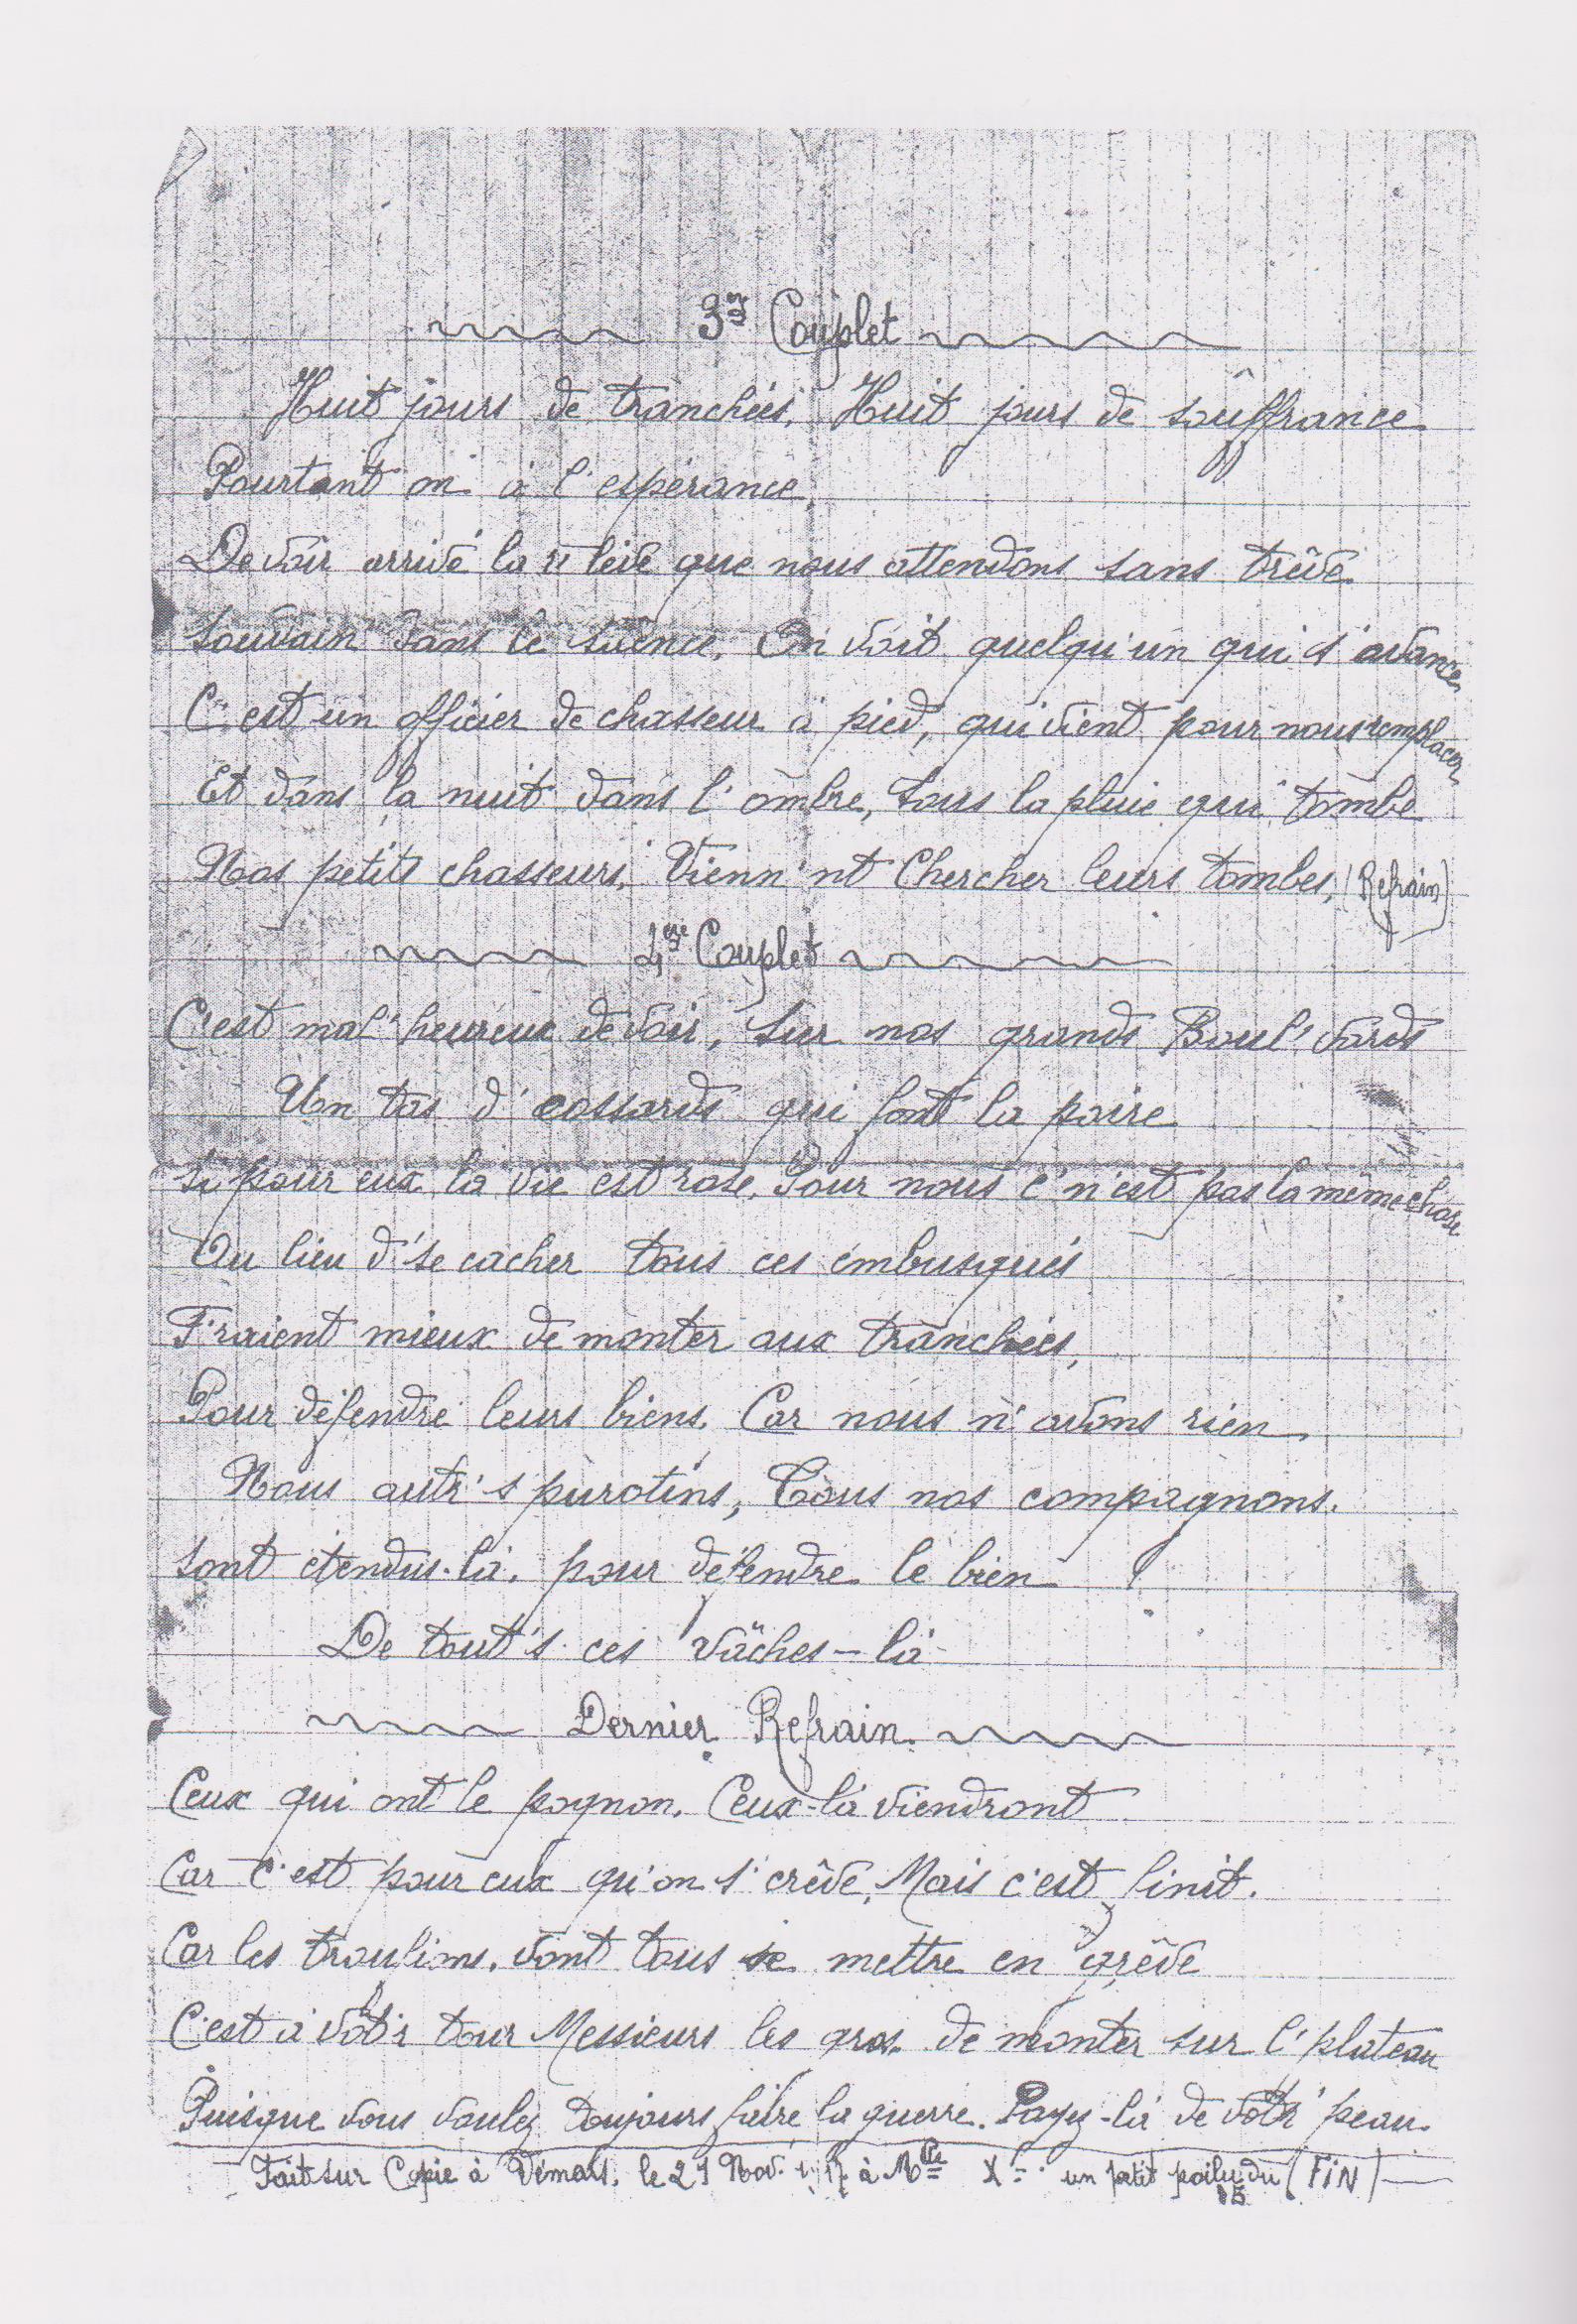 3me Couplet
Huit jours de tranchées. Huit jours de soûffrance
Pourtant on à l'espérance,
De voir arrivé la r'leve que nous attendons sans trêve.
Souvain dans le silence. On voit quelqu'un qui s'avance,
C'est un officier de chasseur à pied, qui vient pour nous remplacer
Et dans la nuit dans l'ombre, sous la pluie qui tombe
Nos petits chasseurs. Vienn'nt Chercher leurs tombes, (Refrain)
4ème Couplet
C'est mal'heureux de voir, Sur nos grands Boul'vards
Un tas d'cossards qui font la poire
Si pour eux la vie est rose. Pour nous c'n'est pas la même chose
Au lieu d'se cacher tous ces embusqués
F'raient mieux de monter aux tranchées,
Pour défendre leurs biens. Car nous n'avons rien
Nous autr's purotins, Tous nos compagnons.
Sont étendus-là. pour défendre le bien
De tout's ces vâches-là
Dernier Refrain.
Ceux qui ont le pognon. Ceux-là viendront
Car c'est pour eux qu'on s'crêve. Mais c'est finit.
Car les troufions. vont tous se mettre en grêve
C'est à vot'r tour Messieurs les gros. de monter sur l'plateau
Puisque vous voulez toujours faire la guerre. Payez-là de votr' peau.
Fait sur Copie à Vémars. le 27 Nov. à Mlle X = un petit poilu du (FIN)